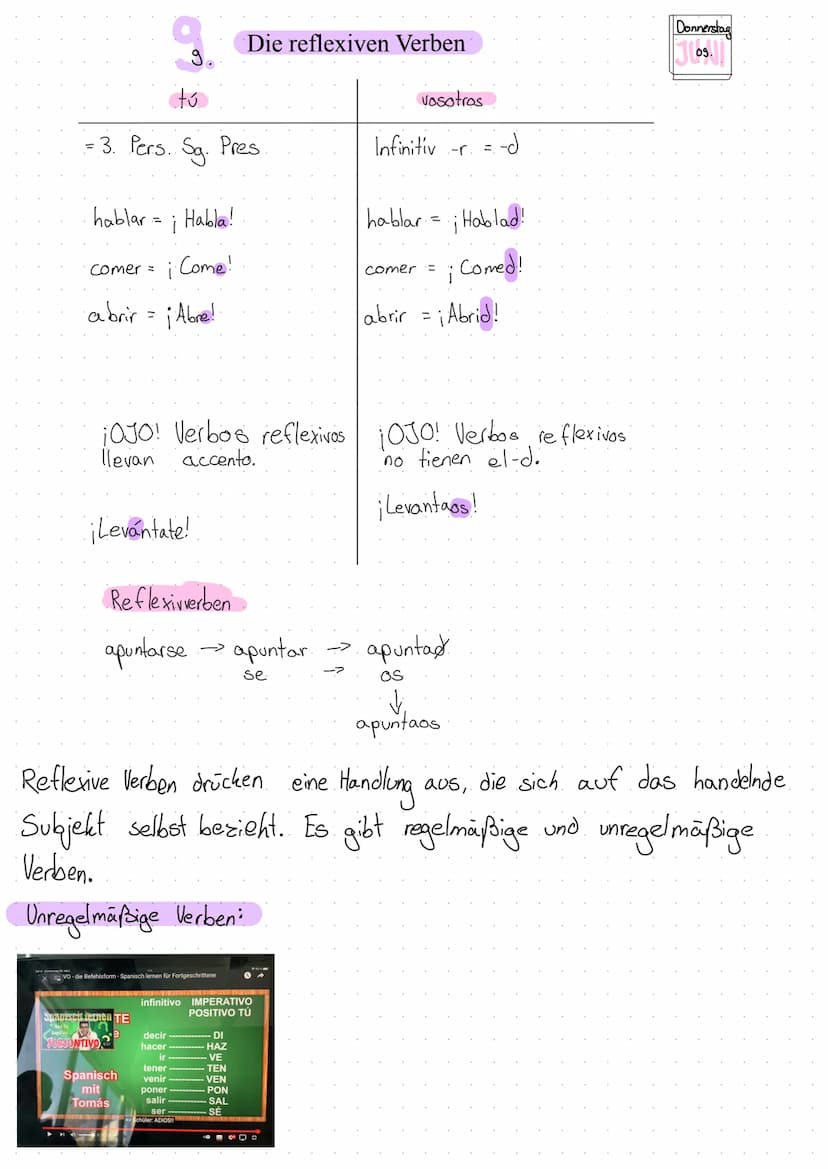 9. Die reflexiven Verben
9.
Donnerstag
JUNI
09.
tú
vosotros
= 3. Pers. Sg. Pres
Infinitiv -r = -d
hablar = ¡Habla!
hablar = ¡Hablad!
comer = ¡Come!
comer = ¡Comed!
abrir = ¡Abre!
abrir = ¡Abrid!
¡OJO! Verbos reflexivos
llevan accento.
¡OJO! Verbos reflexivos
no tienen el-d.
¡Levántate!
¡Levantaos!
Reflexivverben
apuntarse → apuntar → apuntad
se → os
↓
apuntaos
Reflexive Verben drücken eine Handlung aus, die sich auf das handelnde
Subjekt selbst bezieht. Es gibt regelmäßige und unregelmäßige
Verben.
Unregelmäßige Verben:
VO - die Befehlsform - Spanisch lernen für Fortgeschrittene
infinitivo IMPERATIVO
POSITIVO TÚ
Spanisch lernen
TE
e
decir DI
hacer HAZ
ir VE
tener TEN
venir VEN
poner PON
salir SAL
ser SÉ
Spanisch
mit
Tomás
Schüler: ADIOS!!